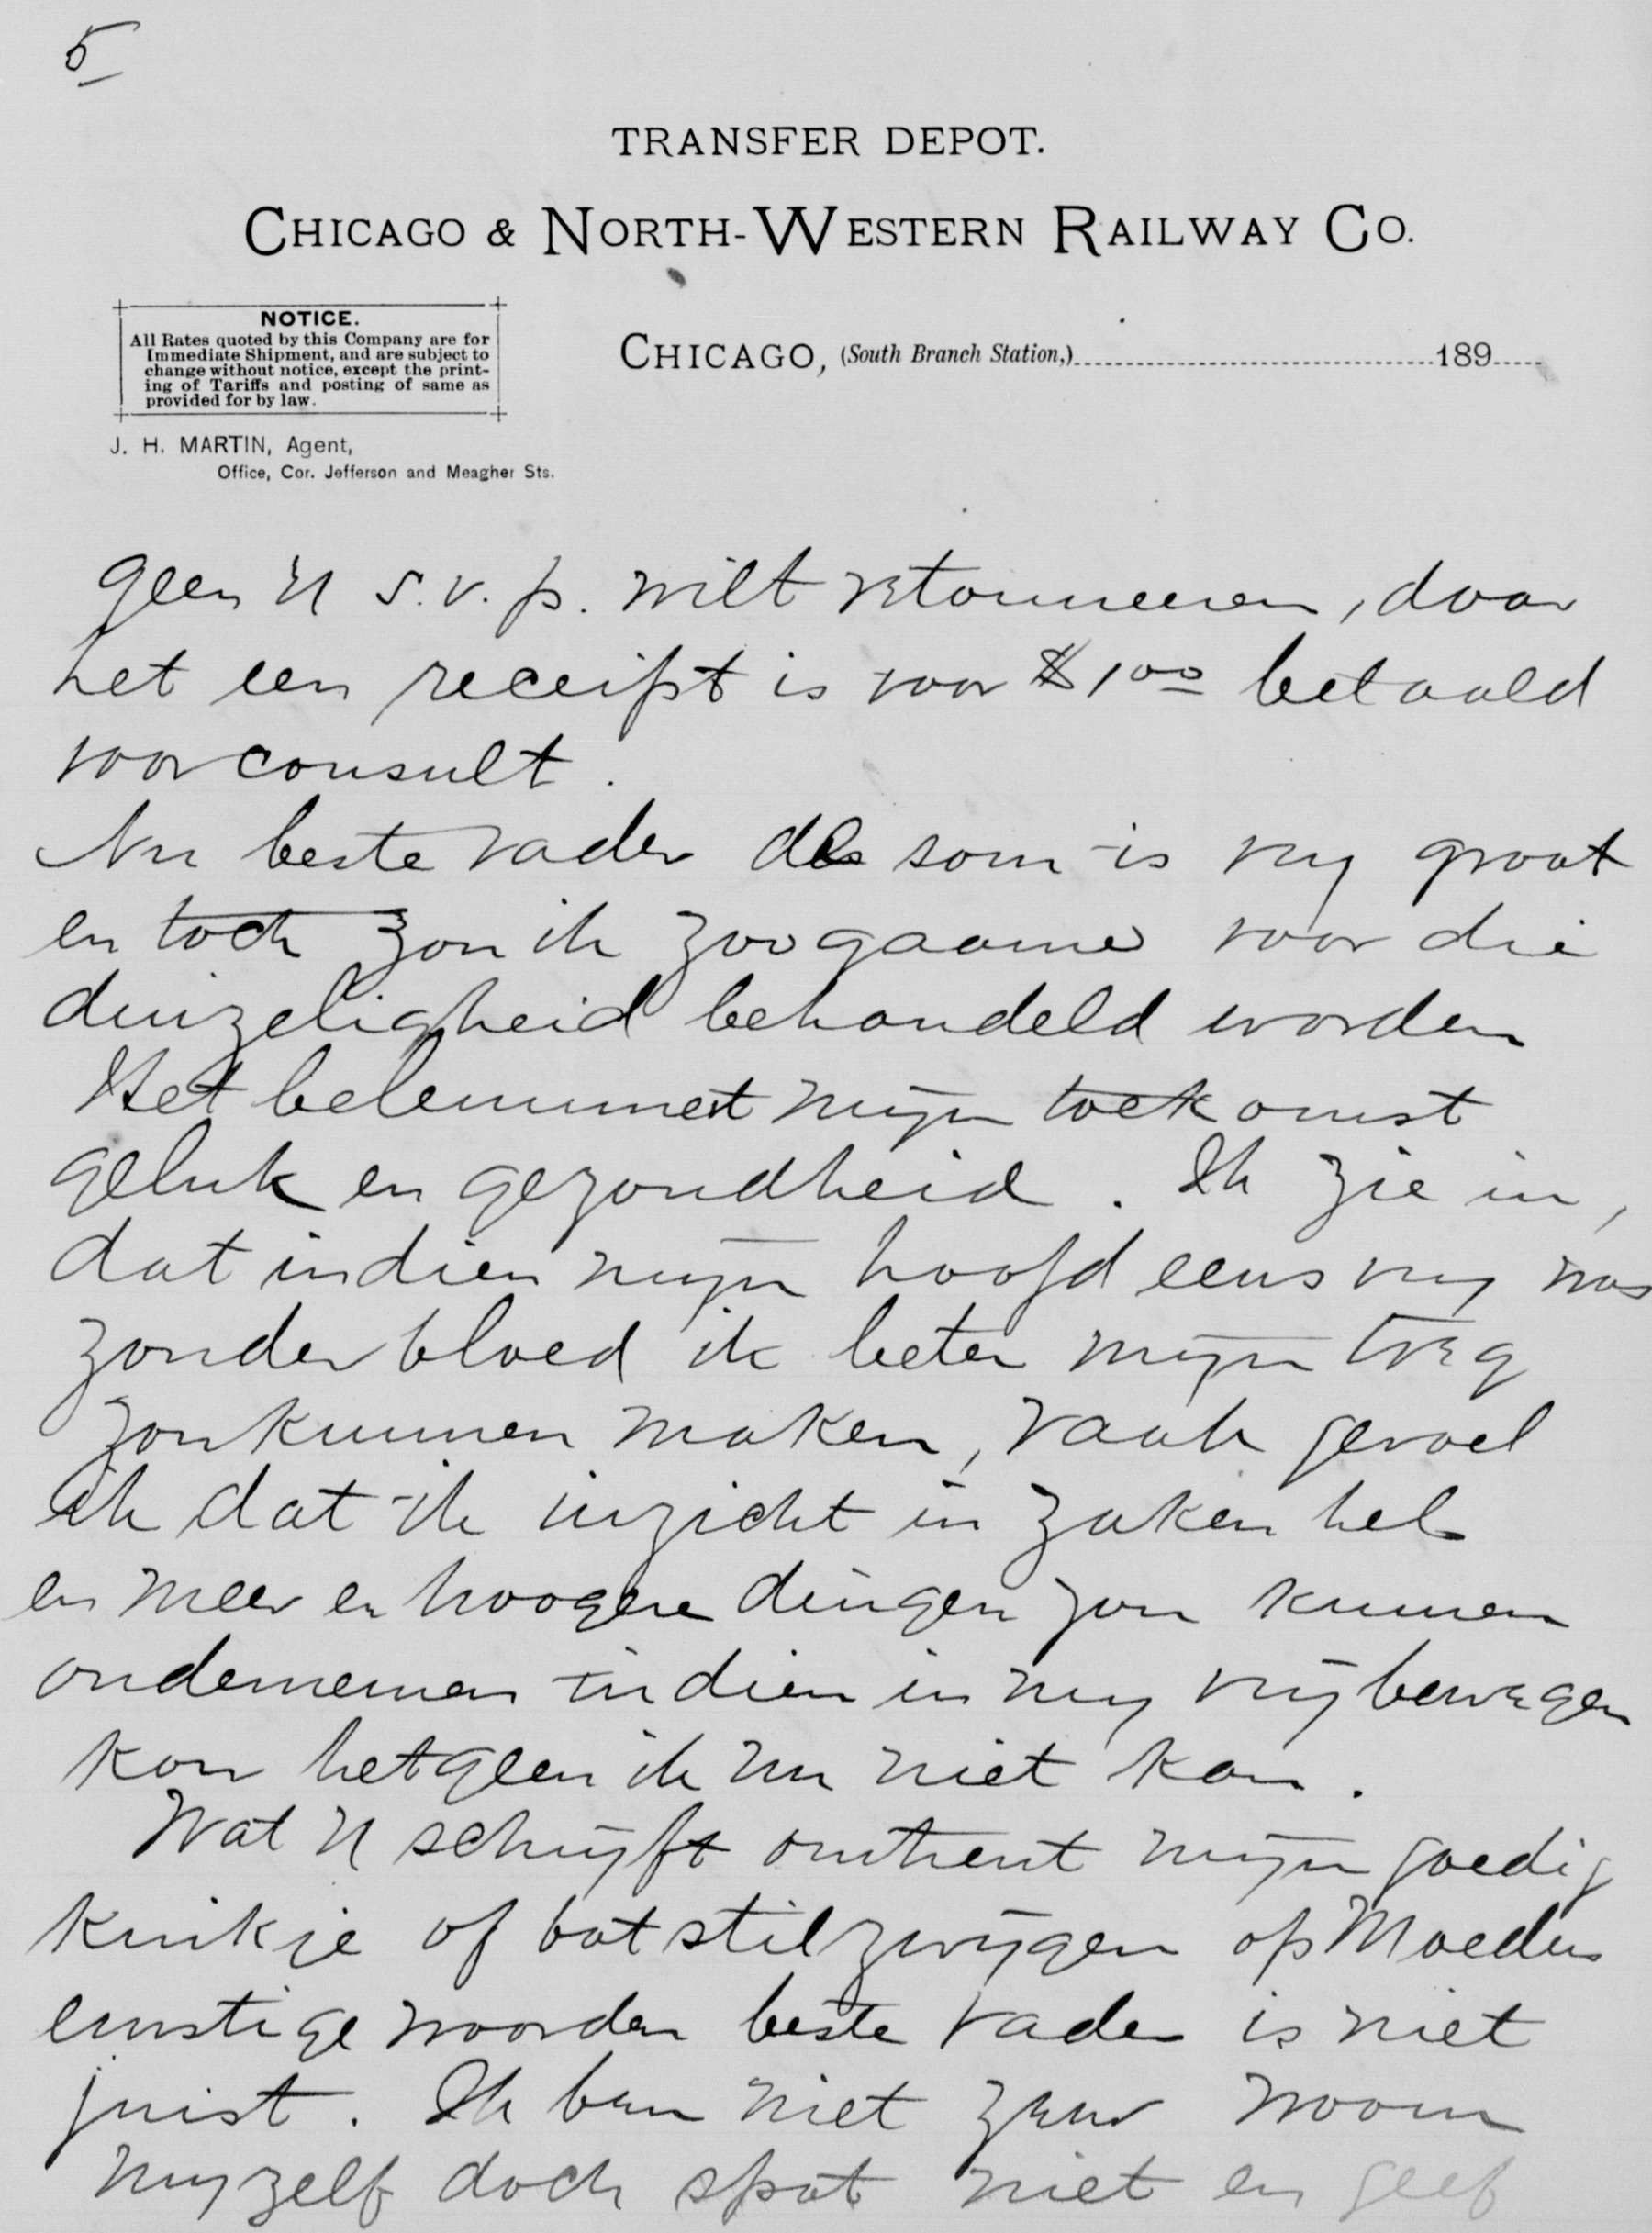 5
TRANSFER DEPOT.
CHICAGO & NORTH-WESTERN RAILWAY CO.
NOTICE.
All Rates quoted by this Company are for
Immediate Shipment, and are subject to
change without notice, except the print-
ing of Tariffs and posting of same as
provided for by law.
CHICAGO, (South Branch Station,) 189
J. H. MARTIN, Agent,
Office, Cor. Jefferson and Meagher Sts.
geen U s.v.p. wilt retourneeren, daar
het een receipt is voor $100 betaald
voor consult.
Nu beste vader de som is vrij groot
en toch zou ik zoo gaarne voor die
duizeligheid behandeld worden
Het belemmert mijn toekomst
geluk en gezondheid. Ik zie in,
dat indien mijn hoofd eens vrij was
zonder bloed ik beter mijn weg
zou kunnen maken, vaak gevoel
ik dat ik inzicht in zaken heb
en meer en hoogere dingen zou kunnen
ondernemen indien in mij vrij bewegen
kon hetgeen ik nu niet kan.
Wat U schrijft omtrent mijn goedig
knikje of bot stilzwijgen op Moeders
ernstige woorden beste vader is niet
juist. Ik ben niet zeer woorn
mijzelf doch spot niet en geef